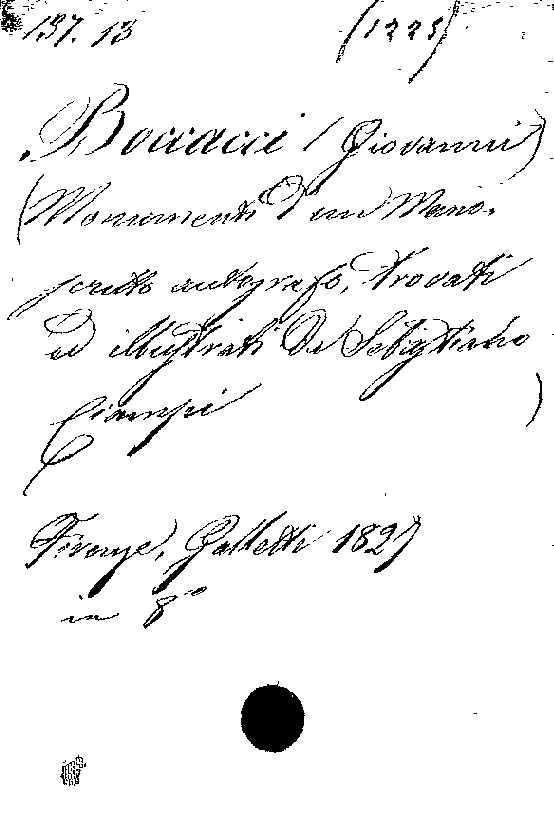 137. 13 (1225)
Boccacci (Giovanni)
(Monumenti d'un Mano-
scritto autografo, trovati
ed illustrati da Sebastiano
Ciampi )
Firenze, Galletti 1827
in 8°